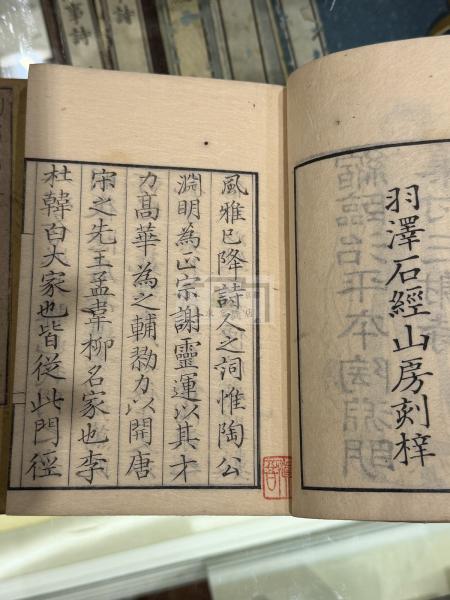 羽澤石經山房刻梓
風雅已降詩人之詞惟陶公
淵明為正宗謝靈運以其才
力高華為之輔勠力以開唐
宋之先王孟韋柳名家也李
杜韓白大家也皆從此門徑